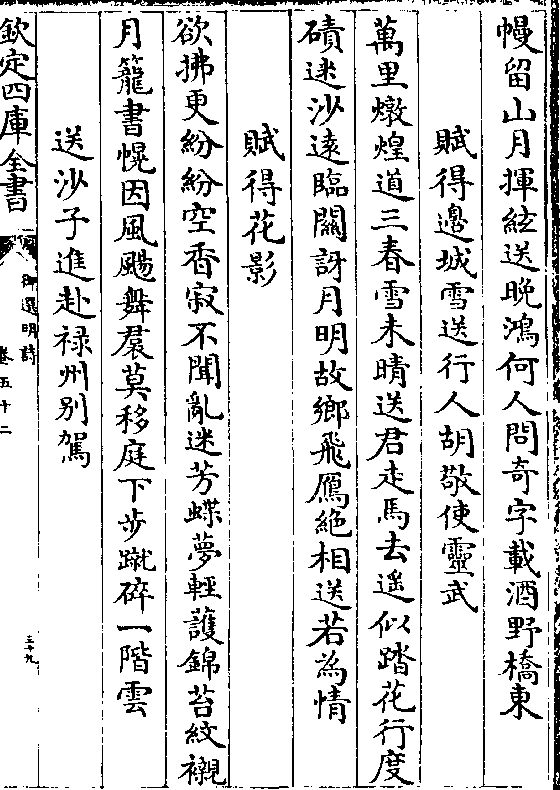 幔留山月揮絃送晚鴻何人問奇字載酒野橋東
賦得邊城雪送行人胡敬使靈武
萬里燉煌道三春雪未晴送君走馬去遥似踏花行度
磧迷沙遠臨關訝月明故鄉飛鴈絶相送若為情
賦得花影
欲拂更紛紛空香寂不聞亂迷芳蝶夢輕護錦苔紋襯
月籠書幌因風颺舞裙莫移庭下步蹴碎一階雲
送沙子進赴祿州别駕
欽定四庫全書
御選明詩
卷五十二
三十九